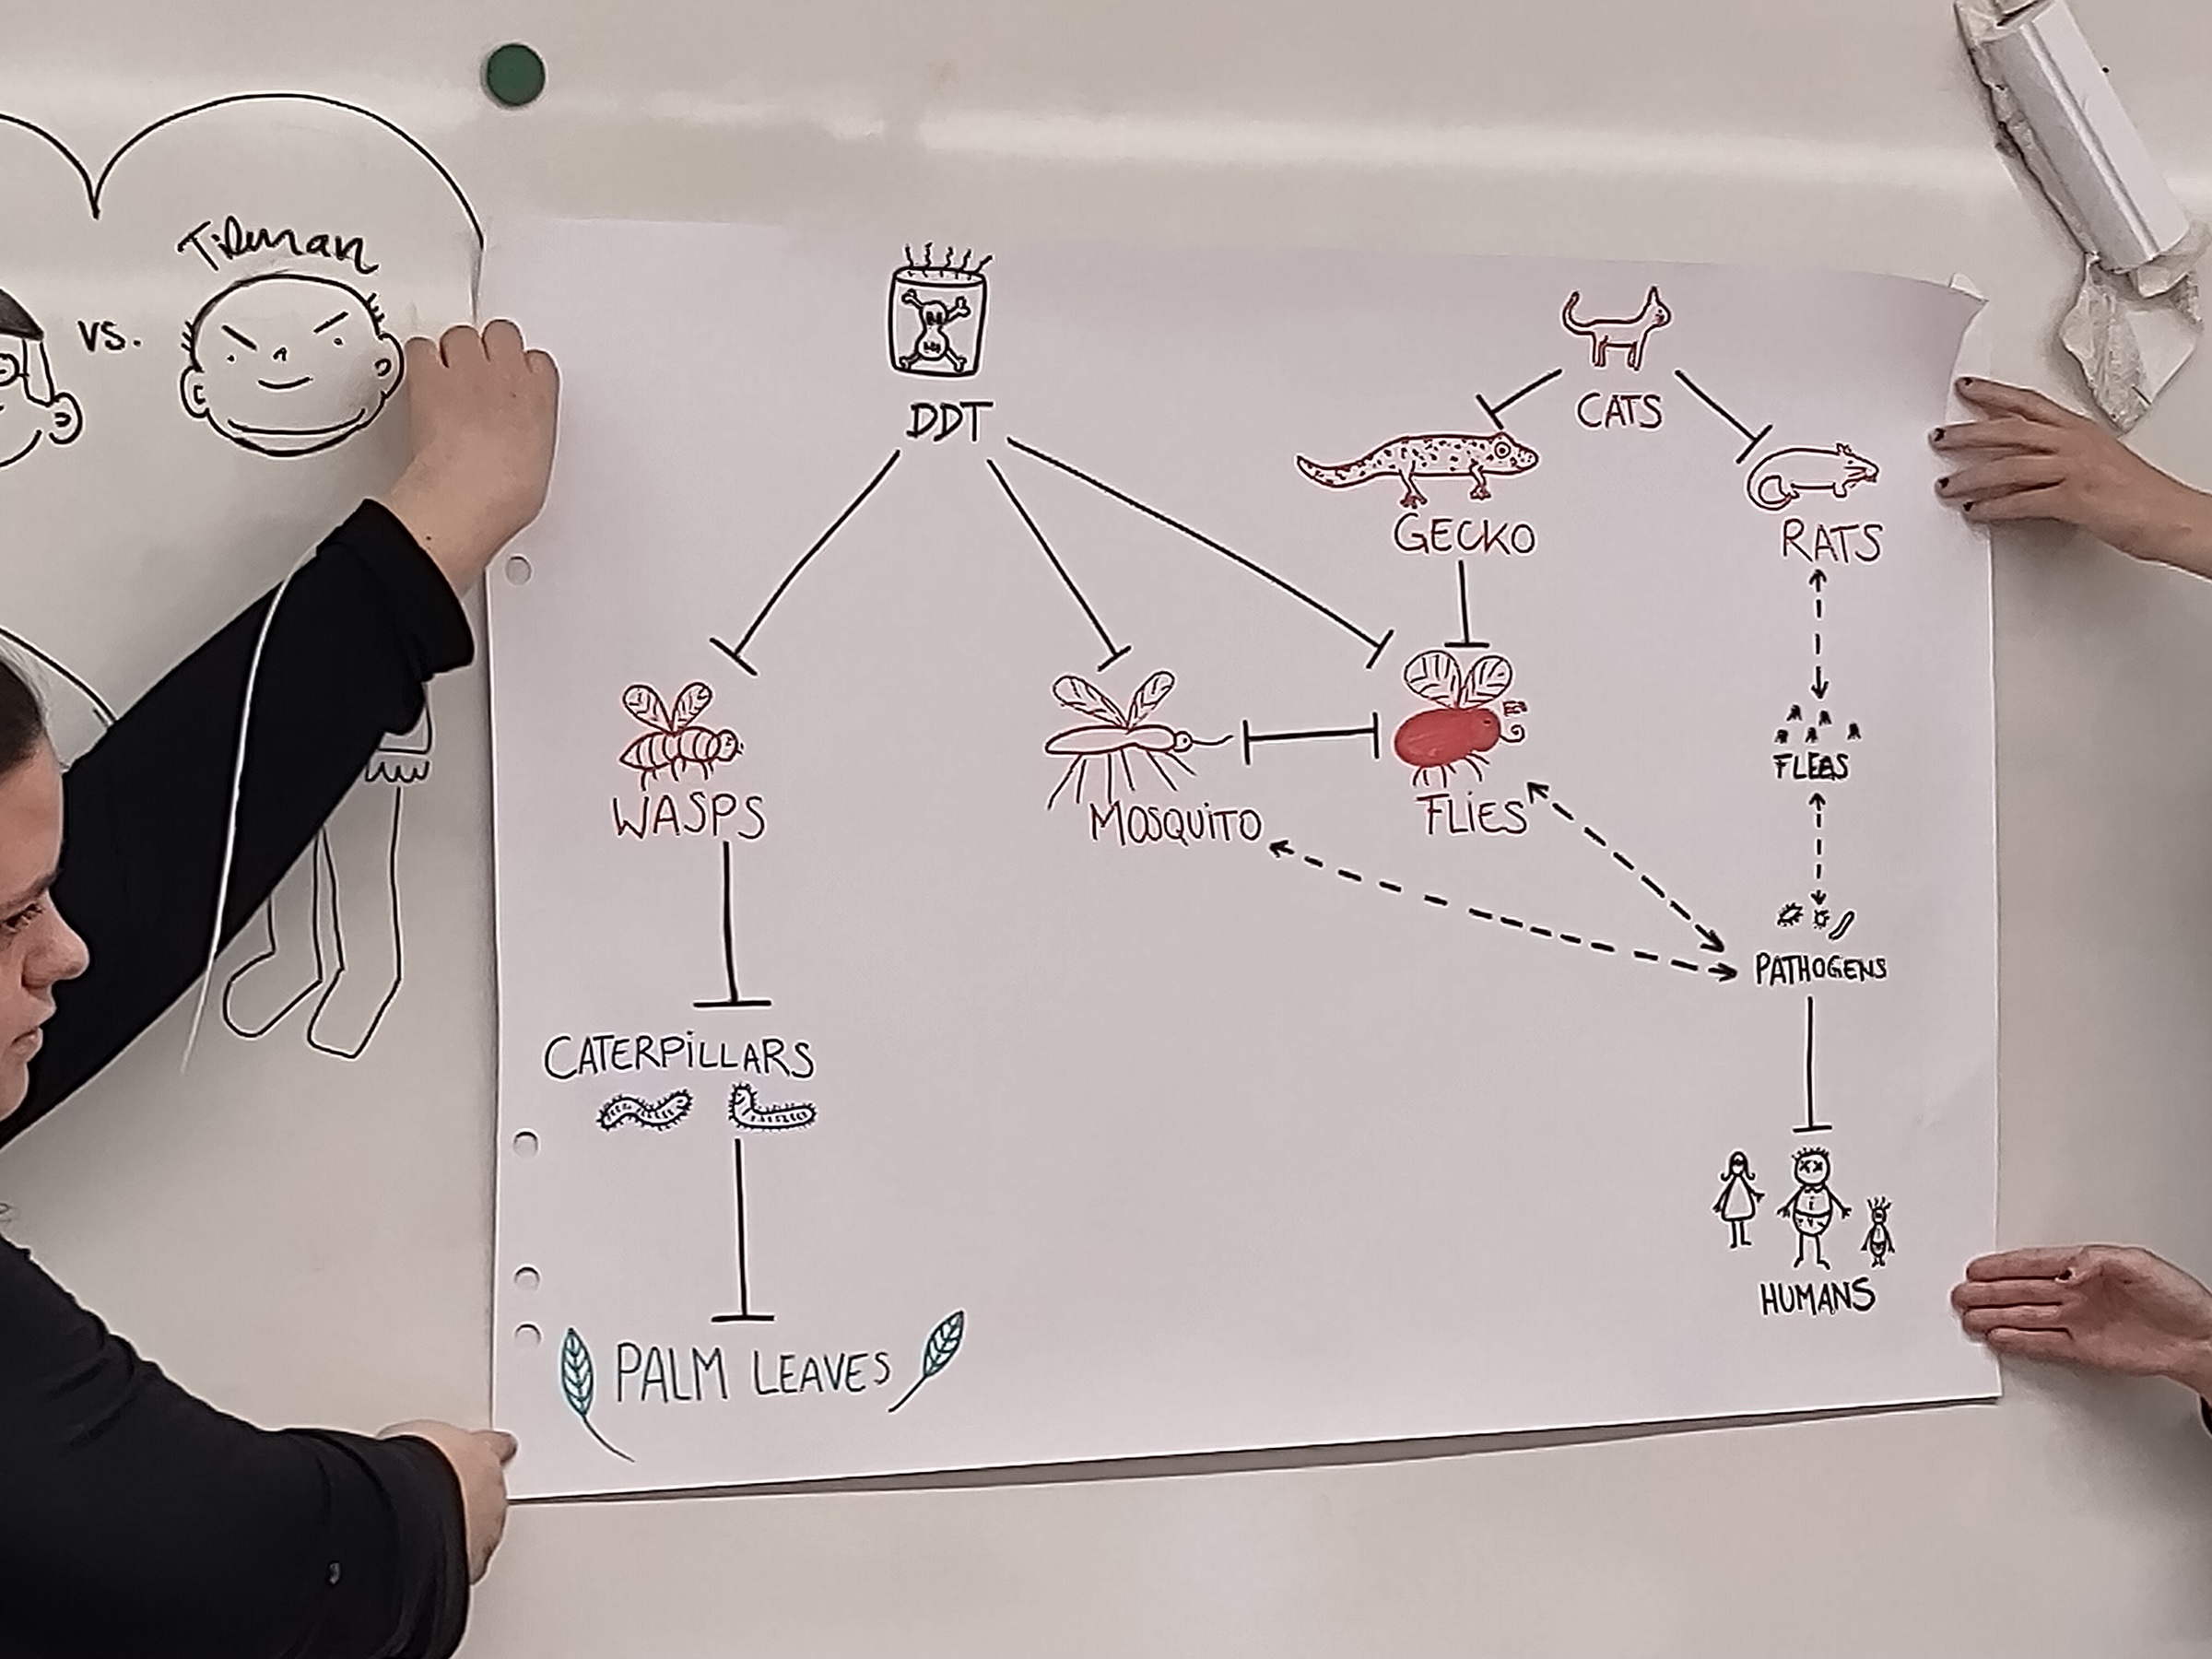 vs.
DDT
CATS
GECKO
RATS
WASPS
MOSQUITO
FLIES
FLEAS
PATHOGENS
CATERPILLARS
HUMANS
PALM LEAVES